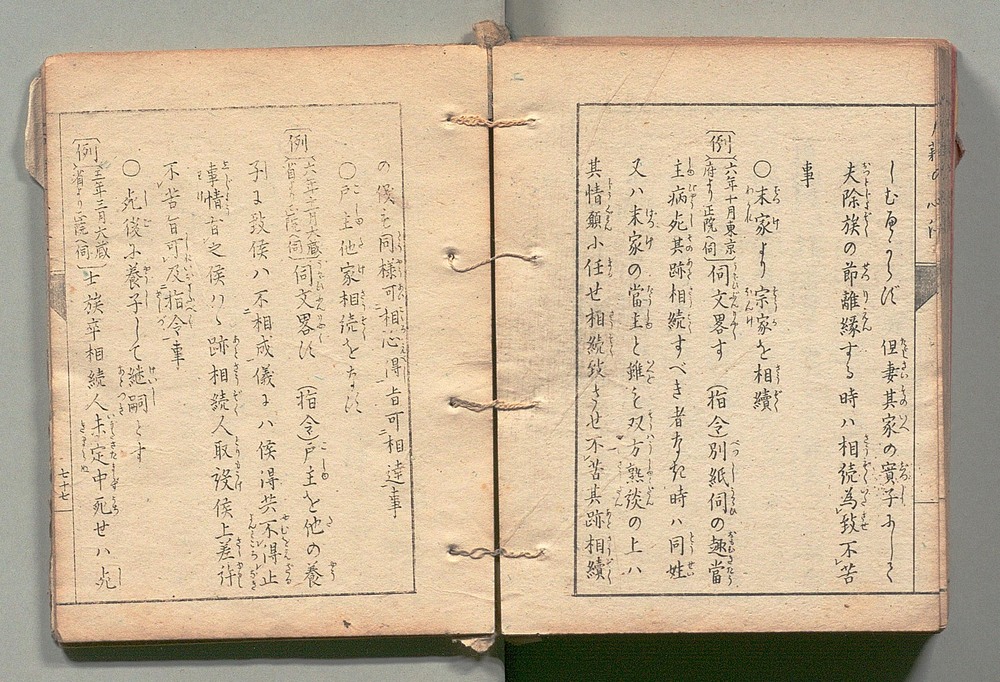 しむべからず　但妻其家の實子ふして
夫除族の節離縁する時ハ相続為致不苦
事
〇末家より宗家を相續
〔例〕六年十月東京府より正院へ伺〕伺文畧す（指令）別紙伺の趣當
主病死其跡相続すべき者なき時ハ同姓
又ハ末家の當主と雖を双方熟談の上ハ
其情願小任せ相続致させ不苦其跡相續
の儀も同様可相心得旨可相達事
〇戸主他家相続をなす
伺文畧す（指令）戸主を他の養
子に致侯ハ不相成儀に侯得共不得止
事情有之侯ハヽ跡相続人取設侯上差許
不苦旨可及指令事
〇死後に養子して継嗣とす
〔例〕三年三月大蔵省より正院へ伺〕士族卒相続人未定中死せハ死
七十七